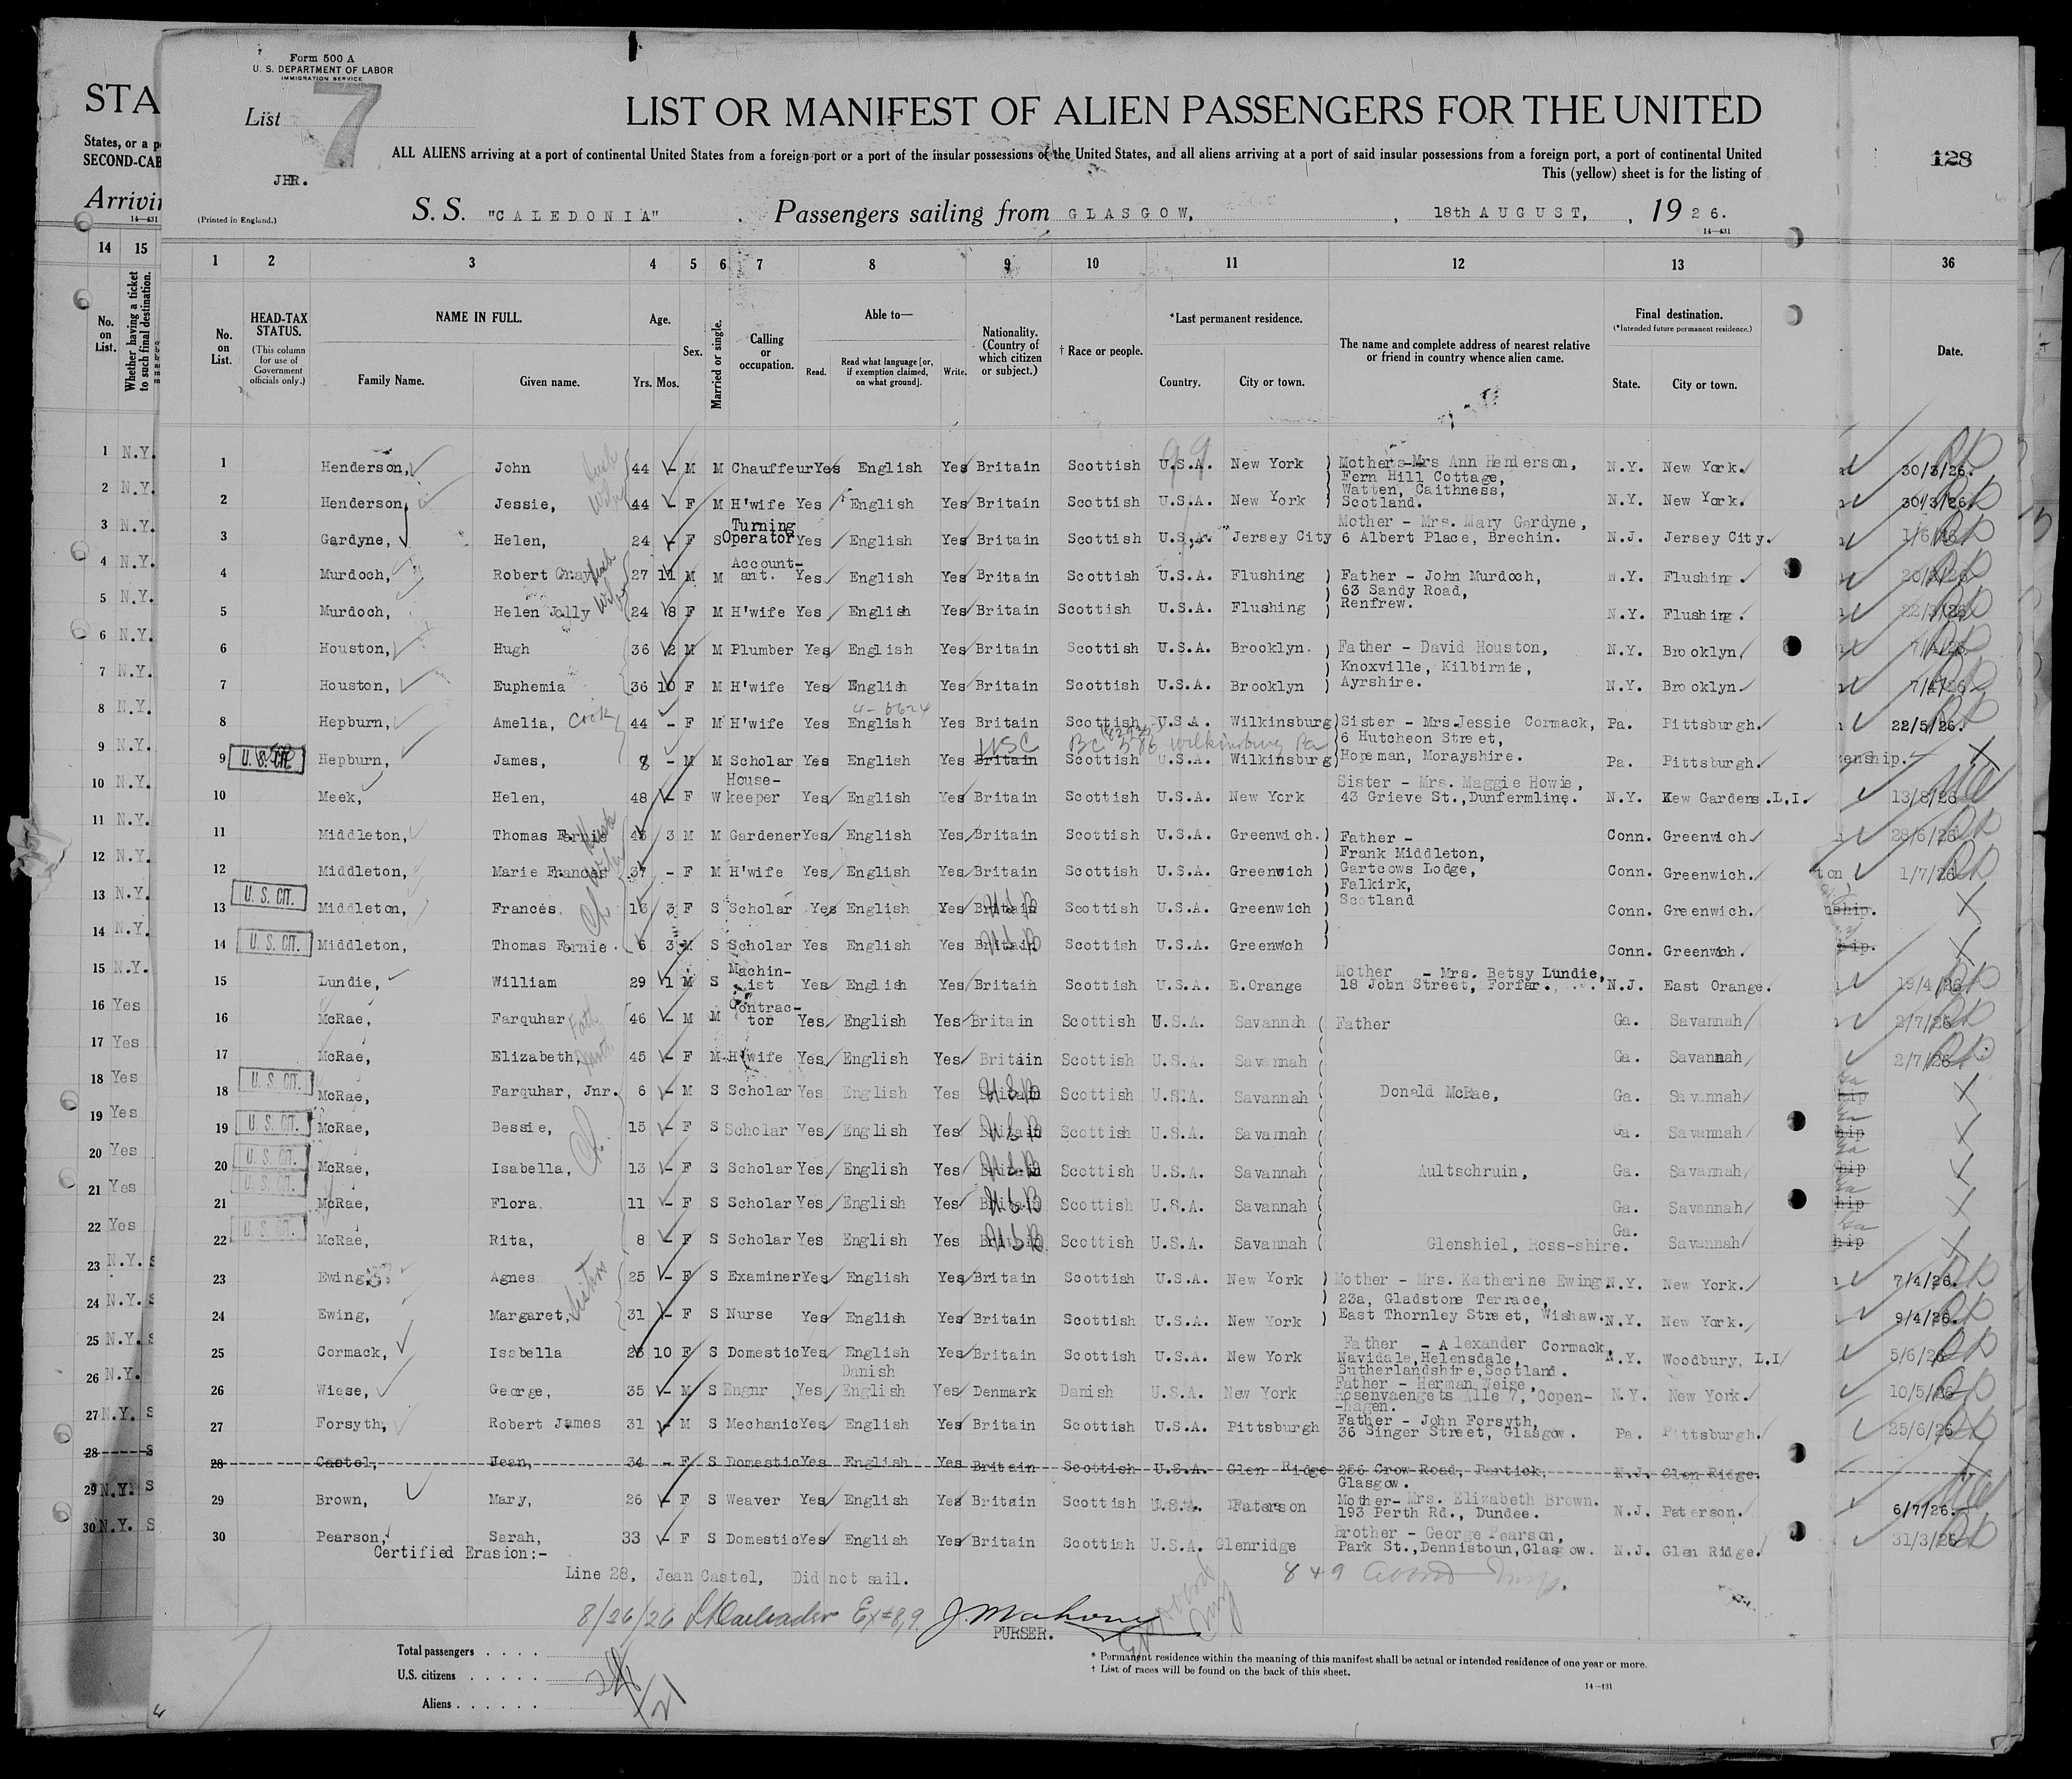 Form 500 A
U. S. DEPARTMENT OF LABOR
IMMIGRATION SERVICE
List 7
JHR.
(Printed in England.)
LIST OR MANIFEST OF ALIEN PASSENGERS FOR THE UNITED
ALL ALIENS arriving at a port of continental United States from a foreign port or a port of the insular possessions of the United States, and all aliens arriving at a port of said insular possessions from a foreign port, a port of continental United
This (yellow) sheet is for the listing of
128
S. S. "CALEDONIA" . Passengers sailing from GLASGOW, , 18th AUGUST, , 1926.
14—431
STA
States, or a p
SECOND-CAB
Arrivin
14—431
14 15
No. on List.
Whether having a ticket to such final destination.
1 2 3 4 5 6 7 8 9 10 11 12 13 36
No. on List.
HEAD-TAX STATUS.
(This column for use of Government officials only.)
NAME IN FULL.
Family Name. Given name.
Age.
Yrs. Mos.
Sex.
Married or single.
Calling or occupation.
Able to—
Read. Read what language [or, if exemption claimed, on what ground]. Write.
Nationality. (Country of which citizen or subject.)
† Race or people.
*Last permanent residence.
Country. City or town.
The name and complete address of nearest relative or friend in country whence alien came.
Final destination.
(*Intended future permanent residence.)
State. City or town.
Date.
1 Henderson, John 44 - M M Chauffeur Yes English Yes Britain Scottish U.S.A. New York Mother-Mrs Ann Henderson, Fern Hill Cottage, N.Y. New York. 30/3/26.
2 Henderson, Jessie, 44 - F M H'wife Yes English Yes Britain Scottish U.S.A. New York Watten, Caithness, Scotland. N.Y. New York. 30/3/26.
3 Gardyne, Helen, 24 - F S Turning Operator Yes English Yes Britain Scottish U.S.A. Jersey City Mother - Mrs. Mary Gardyne, 6 Albert Place, Brechin. N.J. Jersey City. 1/6/26
4 Murdoch, Robert Gray 27 11 M M Accountant. Yes English Yes Britain Scottish U.S.A. Flushing Father - John Murdoch, N.Y. Flushing.
5 Murdoch, Helen Jolly 24 8 F M H'wife Yes English Yes Britain Scottish U.S.A. Flushing 63 Sandy Road, Renfrew. N.Y. Flushing. 22/3/26
6 Houston, Hugh 36 2 M M Plumber Yes English Yes Britain Scottish U.S.A. Brooklyn. Father - David Houston, N.Y. Brooklyn, 7/4/26
7 Houston, Euphemia 36 10 F M H'wife Yes English Yes Britain Scottish U.S.A. Brooklyn Knoxville, Kilbirnie, Ayrshire. N.Y. Brooklyn 7/4/26
8 Hepburn, Amelia, Cook 44 - F M H'wife Yes English Yes Britain Scottish U.S.A. Wilkinsburg Sister - Mrs.Jessie Cormack, Pa. Pittsburgh. 22/5/26.
9 U. S. CIT. Hepburn, James, 8 - M M Scholar Yes English Yes Britain USC Scottish U.S.A. Wilkinsburg 6 Hutcheon Street, Hopeman, Morayshire. Pa. Pittsburgh. enship.
10 Meek, Helen, 48 - F W Housekeeper Yes English Yes Britain Scottish U.S.A. New York Sister - Mrs. Maggie Howie, 43 Grieve St.,Dunfermline. N.Y. Kew Gardens.L.I. 13/8/26
11 Middleton, Thomas Fernie 43 3 M M Gardener Yes English Yes Britain Scottish U.S.A. Greenwich. Father - Conn. Greenwich. 28/6/26
12 Middleton, Marie Frances 37 - F M H'wife Yes English Yes Britain Scottish U.S.A. Greenwich Frank Middleton, Gartcows Lodge, Conn. Greenwich. ton 1/7/26
13 U. S. CIT. Middleton, Frances. 13 3 F S Scholar Yes English Yes Britain Scottish U.S.A. Greenwich Falkirk, Scotland Conn. Greenwich. ship.
14 U. S. CIT. Middleton, Thomas Fernie. 6 3 M S Scholar Yes English Yes Britain Scottish U.S.A. Greenwich Conn. Greenwich. hip.
15 Lundie, William 29 1 M S Machinist Yes English Yes Britain Scottish U.S.A. E.Orange Mother - Mrs. Betsy Lundie, 18 John Street, Forfar. N.J. East Orange. 19/4/26
16 McRae, Farquhar 46 - M M Contractor Yes English Yes Britain Scottish U.S.A. Savannah Father Ga. Savannah 2/7/26
17 McRae, Elizabeth, 45 - F M H'wife Yes English Yes Britain Scottish U.S.A. Savannah Ga. Savannah 2/7/26
18 U. S. CIT. McRae, Farquhar, Jnr. 6 - M S Scholar Yes English Yes Britain Scottish U.S.A. Savannah Donald McRae, Ga. Savannah hip
19 U. S. CIT. McRae, Bessie, 15 - F S Scholar Yes English Yes Britain Scottish U.S.A. Savannah Ga. Savannah hip
20 U. S. CIT. McRae, Isabella, 13 - F S Scholar Yes English Yes Britain Scottish U.S.A. Savannah Aultschruin, Ga. Savannah hip
21 U. S. CIT. McRae, Flora 11 - F S Scholar Yes English Yes Britain Scottish U.S.A. Savannah Ga. Savannah hip
22 U. S. CIT. McRae, Rita, 8 - F S Scholar Yes English Yes Britain Scottish U.S.A. Savannah Glenshiel, Ross-shire. Ga. Savannah hip
23 Ewing, Agnes 25 - F S Examiner Yes English Yes Britain Scottish U.S.A. New York Mother - Mrs. Katharine Ewing N.Y. New York. 7/4/26.
24 Ewing, Margaret, Sisters 31 - F S Nurse Yes English Yes Britain Scottish U.S.A. New York 23a, Gladstone Terrace, East Thornley Street, Wishaw. N.Y. New York. 9/4/26.
25 Cormack, Isabella 10 F S Domestic Yes English Yes Britain Scottish U.S.A. New York Father - Alexander Cormack, Navidale,Helensdale, Sutherlandshire,Scotland. N.Y. Woodbury, L.I 5/6/26
26 Wiese, George, 35 - M S Engnr Yes Danish English Yes Denmark Danish U.S.A. New York Father - Herman Weise, Rosenvaengets Alle 7, Copen-hagen. N.Y. New York. 10/5/26
27 Forsyth, Robert James 31 - M S Mechanic Yes English Yes Britain Scottish U.S.A. Pittsburgh Father - John Forsyth, 36 Singer Street, Glasgow. Pa. Pittsburgh. 25/6/26
28 Castel, Jean, 34 - F S Domestic Yes English Yes Britain Scottish U.S.A. Glen Ridge 256 Crow Road, Partick, Glasgow. N.J. Glen Ridge.
29 Brown, Mary, 26 - F S Weaver Yes English Yes Britain Scottish U.S.A. Paterson Mother-Mrs. Elizabeth Brown. 193 Perth Rd., Dundee. N.J. Paterson. 6/7/26.
30 Pearson, Sarah, 33 - F S Domestic Yes English Yes Britain Scottish U.S.A. Glenridge Brother - George Pearson, Park St.,Dennistoun,Glasgow. N.J. Glen Ridge. 31/3/26
Certified Erasion:-
Line 28, Jean Castel, Did not sail.
8/26/26 Ex=8,9. J. Mahony
PURSER.
Total passengers . . . .
U.S. citizens . . . . .
Aliens . . . . . .
21
* Permanent residence within the meaning of this manifest shall be actual or intended residence of one year or more.
† List of races will be found on the back of this sheet.
14—431